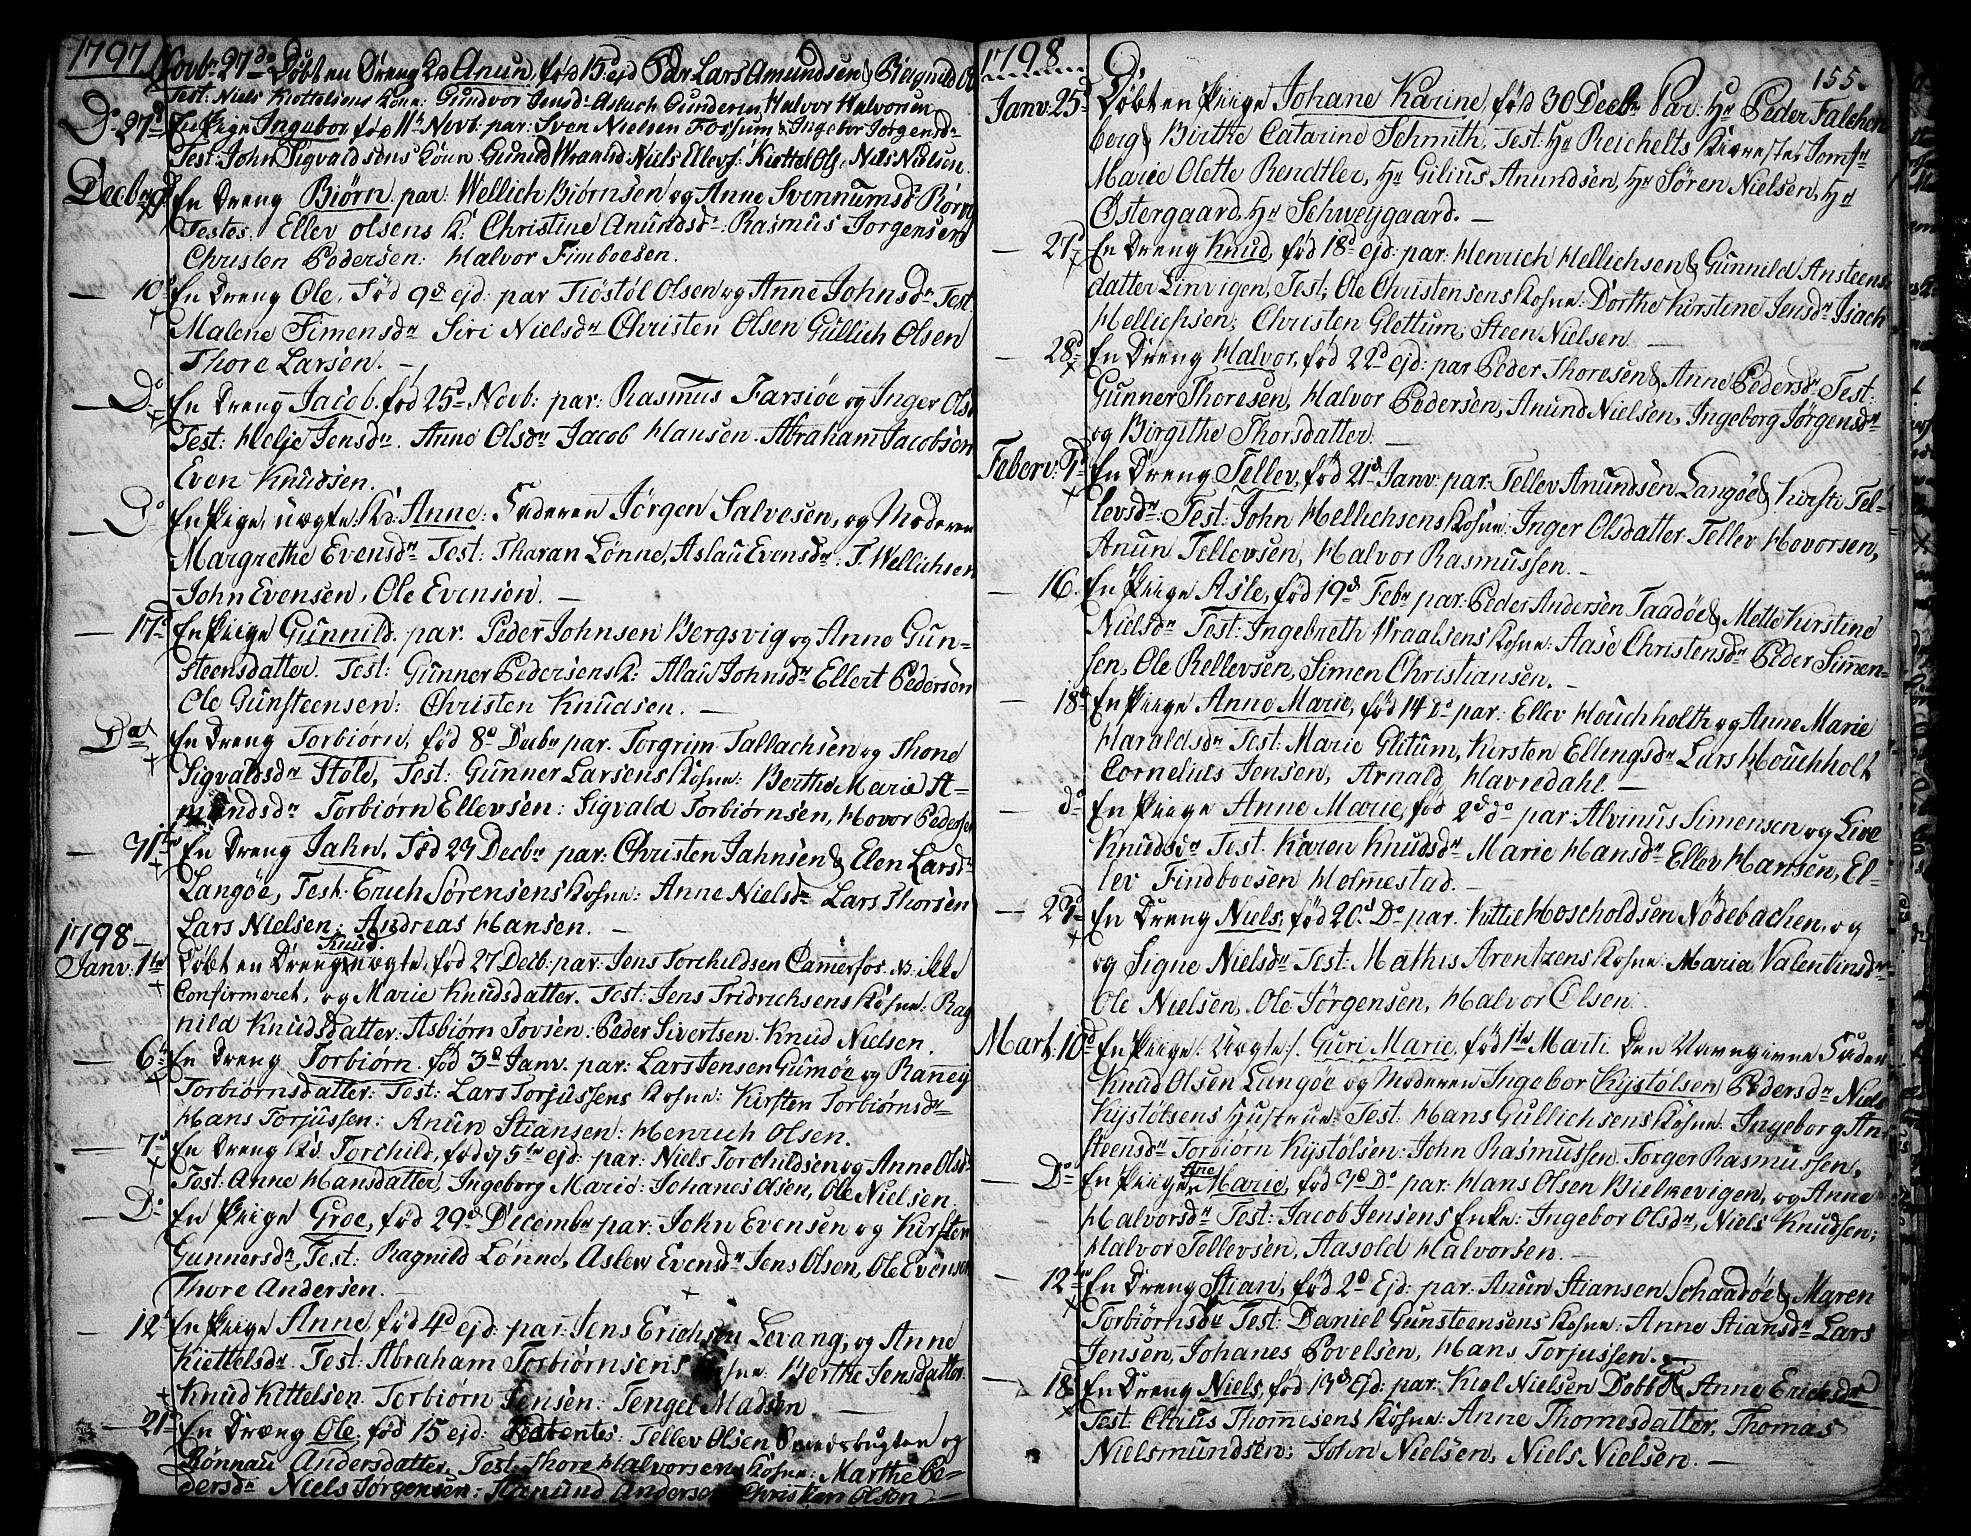 1797
Novbr 27de Döbt en Dreng Anun, föd 15 ejd Par Lars Amundsen & Ragnild
Test: Niels Kiettelsens Kone: Gundvor Jensdr Aslach Gundersen Halvor Halvorsen
Do 27d En Pige Ingebor föd 11te Novb: par: Sven Nielsen Fossum & Ingebor Jörgensdr
Test: John Sigvaldsens Kone Niels Ellevs: Kiettel Ols: Nils Nielsen.
Decbr En Dreng Biörn par: Wellich Biörnsen og Anne Svennumsdr
Testes. Ellev Olsens K: Christine Anundsdr: Rasmus Jorgensen
Christen Pedersen: Halvor Fimboesen.
— 10d En Dreng Ole, Föd 9d ejd: par Tiöstöl Olsen og Anne Johnsdr Test
Malene Simensdr Siri Nielsdr Christen Olsen Gullich Olsen
Thore Larsen. —
— Do En Dreng Jacob, föd 25d Novb: par: Rasmus Farsiöe og Inger Ols
Test: Helje Jensdr. Anne Olsdr Jacob Hansen. Abraham Jacobsen
Even Knudsen.
— Do En Pige, uægte Kd: Anne: Faderen Jörgen Salvesen, og Moderen
Margrethe Evensdr Test: Tharan Lönne, Aslau Evensdr: T. Wellichsen
John Evensen, Ole Evensen. —
— 17d En Piige Gunnild. par. Peder Johnsen Bergsvig og Anne Gun-
steensdatter. Test: Gunner Pedersens K: Alau Johnsdr Ellert Pedersen
Ole Gunsteensen: Christen Knudsen. —
Do En Dreng Torbiörn, föd 8d Decbr par. Torgrim Tallachsen og Thone
Sigvaldsdr Stöle, Test: Gunner Larsens Kohne: Berthe Marie A-
mundsdr Torbiörn Ellevsen: Sigvald Torbiörnsen, Hovor Pedersen
— 31te En Dreng Jahn, Föd 23 Decbr par: Christen Jahnsen & Elen Larsdr
Langöe, Test: Erich Sörensens Kohne: Anne Nielsdr Lars Thorsen
Lars Nielsen: Andreas Hansen. —
1798
Janv: 1te Döbt en Dreng Knud uægte, föd 27 Decb: par: Jens Torchildsen Camerfos NB: ikke
Confirmeret, og Marie Knudsdatter. Test: Jens Fridrichsens Kohne: Rag
nild Knudsdatter: Asbiörn Tovsen: Peder Sivertsen Knud Nielsen.
— 6d En Dreng Torbiörn. föd 3d Janv. par: Lars Jensen Gumöe og Raney
Torbiörnsdatter: Test: Lars Torjussens Kohne: Kirsten Torbiörnsdr
Hans Torjussen: Anun Stiansen: Henrich Olsen.
— 7d En Dreng Torchild, föd 5te ejd: par: Niels Torchildsen og Anne Olsd
Test: Anne Hansdatter, Ingeborg Marie: Johanes Olsen, Ole Nielsen.
— Do En Piige Groe, föd 29d Decembr par: John Evensen og Kirsten
Gunnersdr, Test: Ragnild Lönne, Aslew Evensdr Jens Olsen, Ole Evensen
Thore Andersen.
— 12d En Piige Anne, föd 4d ejd: par: Jens Erichsen Levang; og Anne
Kiettelsdr. Test: Abraham Torbiörnsens Kohne: Berthe Jensdatter
Knud Kittelsen Torbiörn Jensen: Tengel Madsen —
— 21d En Dreng Ole, föd 15 ejd: Tellev Olsen Smedsbugten og
Rönnau Andersdatter, Test: Thore Halvorsens Kohne: Marthe Pe-
dersdr Niels Jörgensen: Amund Andersen Christian Olsen. —
1798
155.
Janv: 25d Döbt en Piige Johane Karine föd 30 Decbr Par: Hr Peder Falchen
berg & Birthe Catarine Schmith, Test: Hr Reichelts Kiæreste, Jomfr
Marie Olette Rendtler, Hr Gilius Anundsen, Hr Sören Nielsen, Hr
Östergaard, Hr Schweygaard. —
— 27d En Dreng Knud, föd 18d ejd: par: Henrich Hellichsen & Gunnild Ansteens-
datter Linvigen, Test: Ole Christensens Kohne: Dorthe Kirstine Jensdr Isach
Hellichsen; Christen Glettum, Steen Nielsen —
— 28d En Dreng Halvor, föd 22d ejd: par Peder Thoresen & Anne Pedersdr Test:
Gunner Thoresen, Halvor Pedersen, Anund Nielsen, Ingeborg Jörgensdr
og Birgithe Thorsdatter. —
Feberv. En Dreng Tellev, föd 21d Janv: par: Tellev Anundsen Langöe & Kirsti Tel-
levsdr. Test: John Hellichsens Kohne: Inger Olsdatter Tellev Hovorsen,
Anun Tellevsen, Halvor Rasmussen. —
— 16. En Piige Asle, föd 19d Febr par: Peder Andersen Taadöe & Mette Kirstine
Nielsdr Test: Ingebreth Wraalsens Kohne: Aase Christensdr Peder Simen-
sen, Ole Rellevsen, Simen Christiansen. —
— 18d En Piige Anne Marie, föd 14 Do par: Ellev Houchholt og Anne Marie
Haraldsdr Test: Marie Glitum, Kirsten Ellengsdr Lars Houchholt
Cornelius Jensen, Arnald Havredahl —
— do En Piige Anne Marie, föd 2d do par: Alvinus Simensen og Live
Knudsdr Test. Karen Knudsdr Marie Hansdr Ellev Hansen, El-
lev Findboesen Holmestad. —
— 23d En Dreng Niels, föd 20d Do par: Kittil Hoscholdsen Nödebachen, og
og Signe Nielsdr Test: Mathis Arentzens Kohne: Maria Valentinsdr
Ole Nielsen, Ole Jörgensen, Halvor Olsen.
Mart. 10d En Piige /: Uægte :/. Guri Marie, föd 1te Marti. Den Udengivne Fader
Knud Olsen Langöe og Moderen Ingebor Kystölsen Pedersdr Niels
Kystölsens Hustrue: Test: Hans Gullichsens Kohne: Ingeborg An-
steensdr Torbiorn Kystölsen: John Rasmussen. Torger Rasmussen,
— Do En Piige Ane Marie, föd 3d Do par: Hans Olsen Bielkevigen, og Anne
Halvorsdr Test: Jacob Jensens Enke: Ingebor Olsdr, Niels Knudsen;
Halvor Tellevsen, Aasold Halvorsen. —
— 12te En Dreng Stian, föd 2d Ejd: par: Anun Stiansen Schaadöe & Maren
Torbiörnsdr Test: Daniel Gunsteensens Kohne: Anne Stiansdr Lars
Jensen, Johanes Povelsen, Hans Torjussen. —
— 18d En Dreng Niels, föd 13d Ejd: par: Kiel Nielsen Dobbe & Anne Ericksdr
Test: Claus Thommesens Kohne: Anne Thomesdatter, Thomas
Nielsmundsen; John Nielsen, Niels Nielsen. —